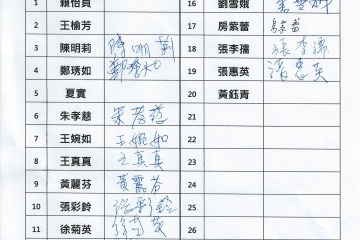 1 賴怡貞 16 劉雪娥
2 王榆芳 17 房紫蕾 房紫蕾
3 陳明莉 陳明莉 18 張李孺 張李孺
4 鄭琇如 鄭琇如 19 張惠英 張惠英
5 夏實 20 黃鈺青
6 朱孝慈 朱孝慈 21
7 王婉如 王婉如 22
8 王真真 王真真 23
9 黃麗芬 黃麗芬 24
10 張彩鈴 張彩鈴 25
11 徐菊英 徐菊英 26